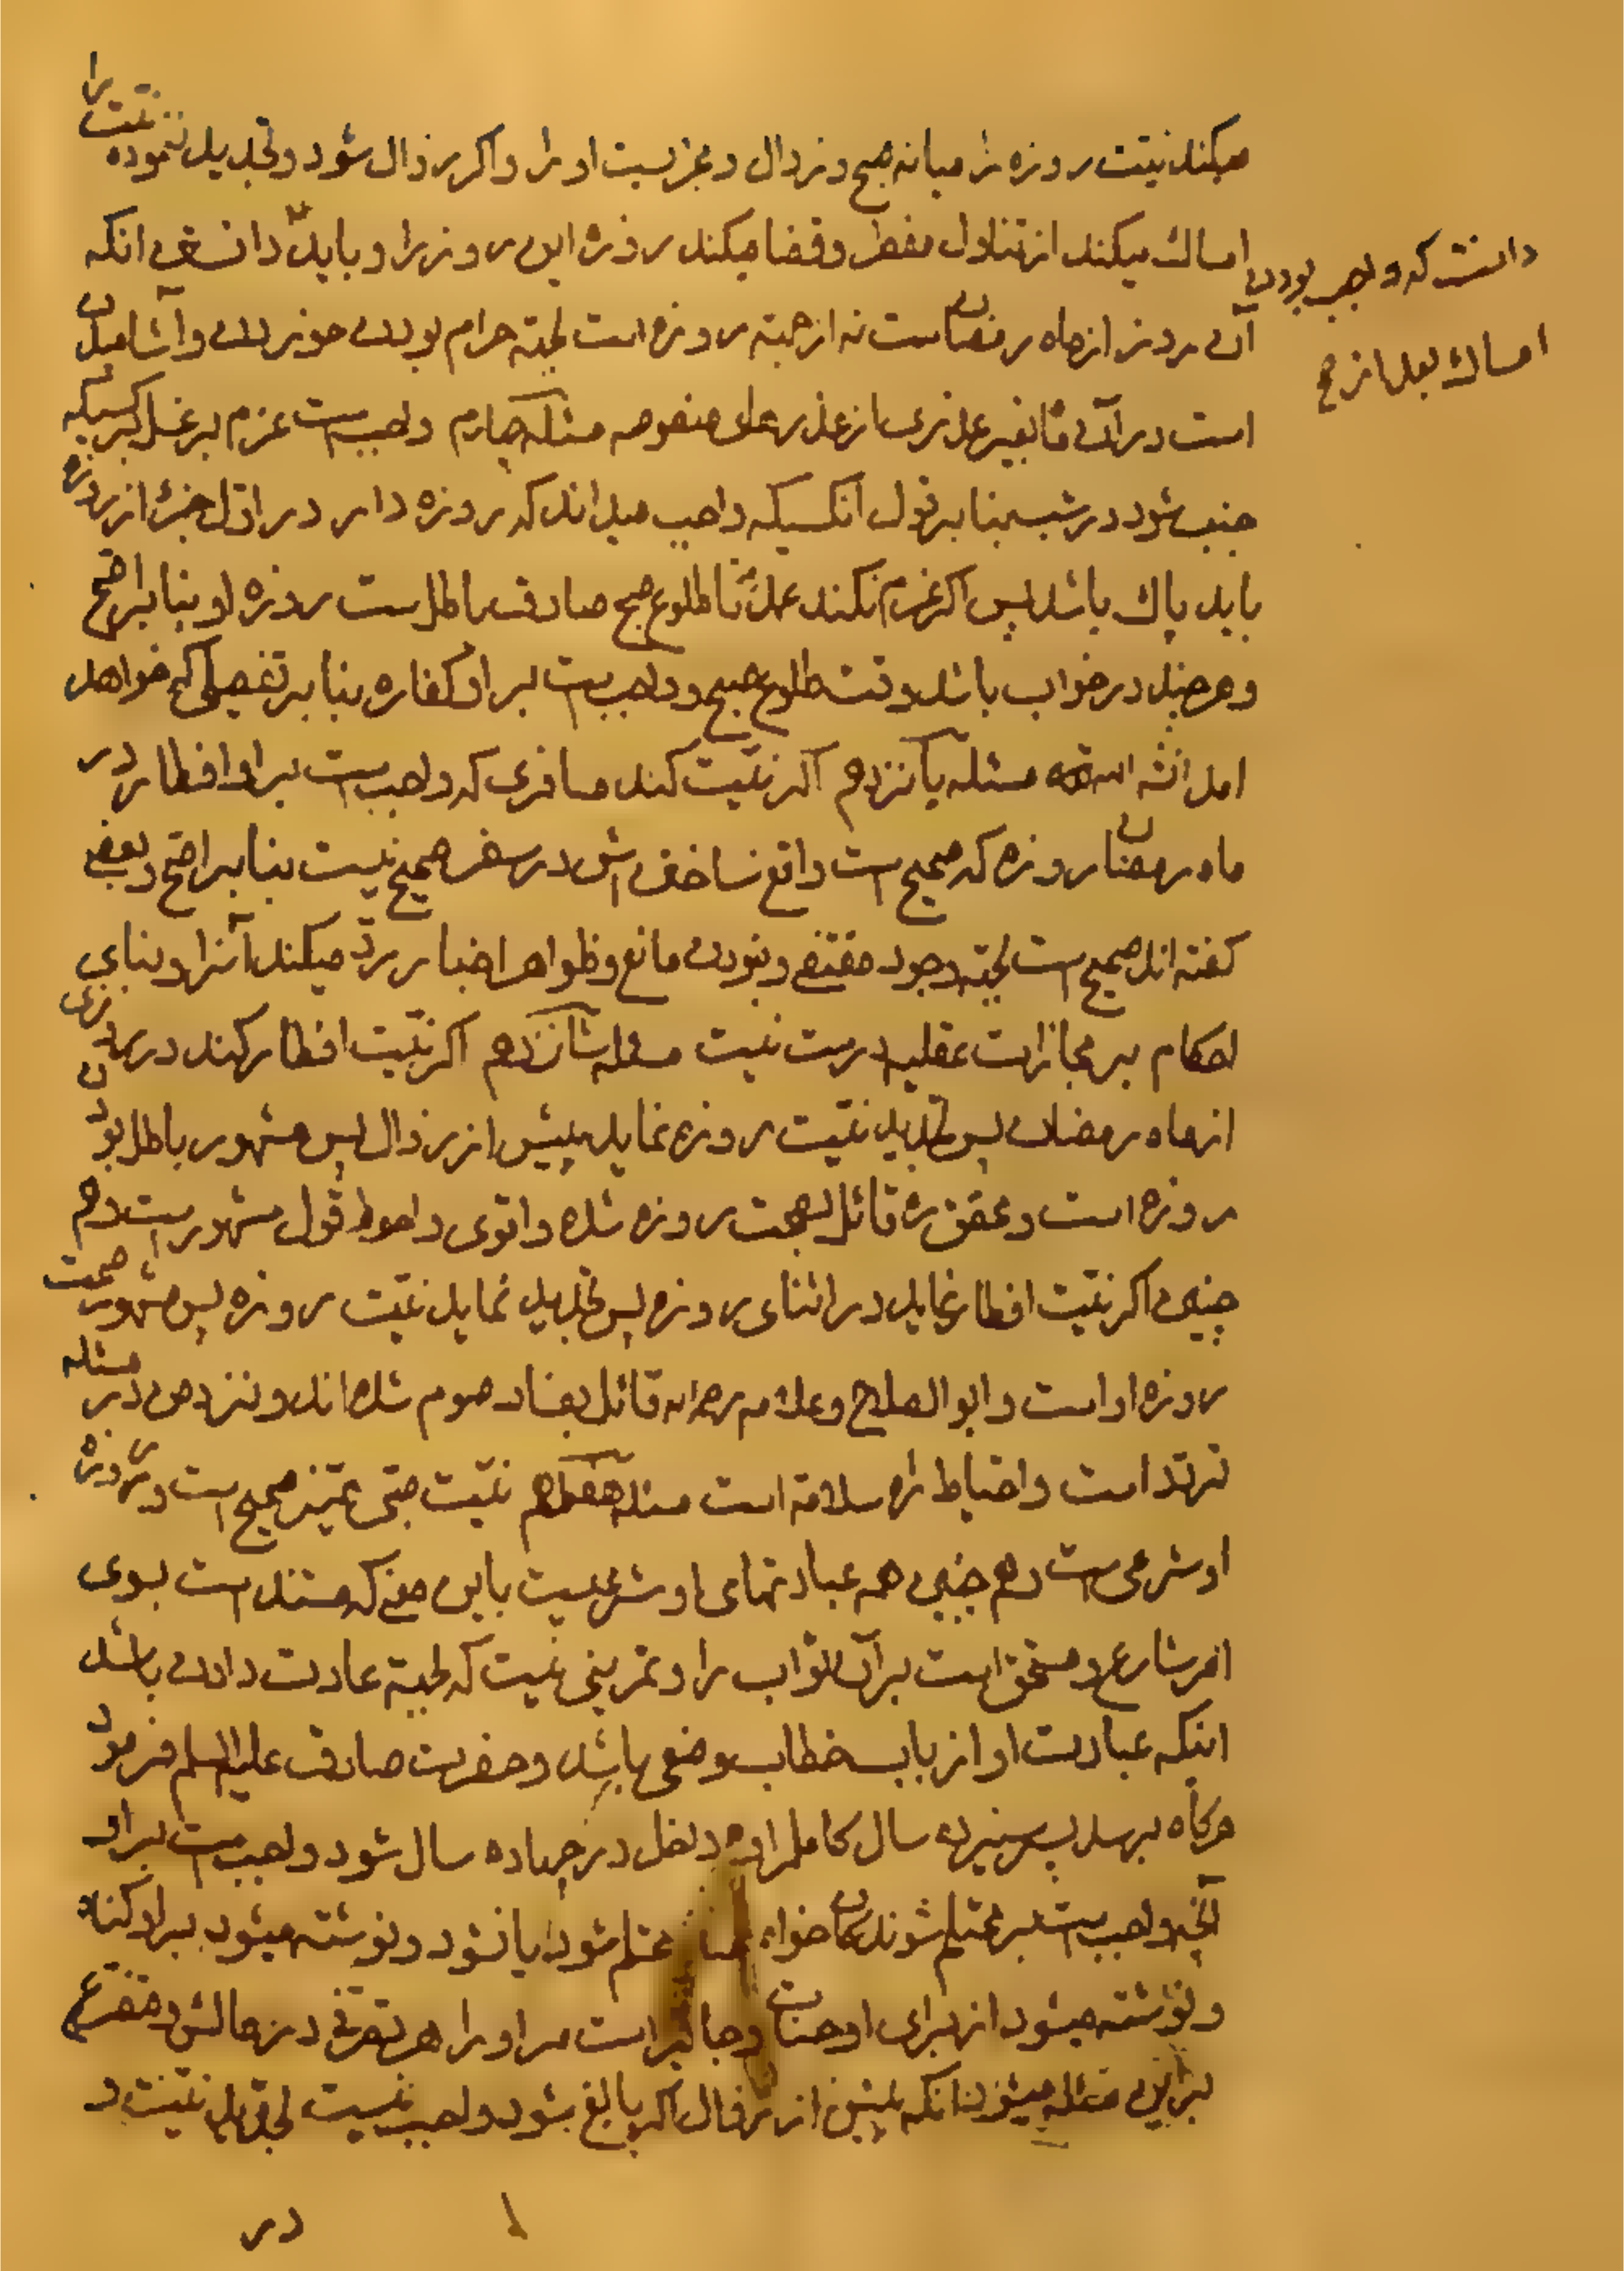 میکند نیت روزه را میانه صبح و زوال و مجزیست او را و اکر زوال شود و تجدید ننموده نیت را
امساك میکند از تناول مفطر و قضا میکند روزه این روز را و باید دانست انکه
دانست که واجب بودن
امساك بعد از
آن روز از ماه رمضان است نه از جهته روزه است لجهته حرام بودن خوردن و آشامیدن
است در آن مابغیر عذری از عذرهای منصوصه مسئله چهارم واجبست عزم بر غسل بر کسیکه
جنب شود در شب بنا بر قول آنکسیکه واجب میداند که روزه دار در اول جزء از روزه
باید پاك باشد پس اکر عزم نکند عمدا تا طلوع صبح صادق باطلست روزه او بنا بر اصح
و هر چند در خواب باشد وقت طلوع صبح و واجبست بر او کفاره بنا بر تفصیلی که خواهد
امد انشه الله مسئله پانزدهم اکر نیت کند مسافری که واجبست بر او افطار در
ماه رمضان روزه که صحیح است واقع ساختنش در سفر صحیح نیست بنا بر اصح و بعضی
کفته اند صحیح است لجهته وجود مقتضی و نبودن مانع و ظواهر اخبار رد میکند آنرا و بنای
احکام بر مجازات عقلیه درست نیست مسئله شانزدهم اکر نیت افطار کند در روزی
از ماه رمضان پس تجدید نیت روزه نماید پیش از زوال پس مشهور باطل بودن
روزه است و محقق ره قائل بصحت روزه شده و اقوی و احوط قول مشهورست و هم
چنین اکر نیت افطار نماید در اثنای روزه پس تجدید نماید نیت روزه پس مشهور صحت
روزه او است و ابو الصلاح و علامه رحمه الله قائل بفساد صوم شده اند و نزد من در مسئله
تردد است و احتیاط راه سلامة است مسئله هفدهم نیت صبی ممیز صحیح است و روزه
او شرعی است و هم چنین همه عبادتهای او شرعیست باین معنی که مستند است بسوی
امر شارع و مستحق است بر آن ثواب را و تمرینی نیست که لجهته عادت دادن باشد
اینکه عبادت او از باب خطاب وضعی باشد و حضرت صادق علیه السلم فرمود
هرکاه برسد پسر سیزده سال کامل را و داخل در چهارده سال شود واجبست بر او
آنچه واجبست بر محتلم شوندکان خواه محتلم شود یا نشود و نوشته میشود بر او کناه
و نوشته میشود از برای او حسنات و جایز است مر او را هر تصرفی در مالش و متفرع
بر این مسئله میشود انکه پیش از زوال اکر بالغ بشود واجب نیست تجدید نیت و
در